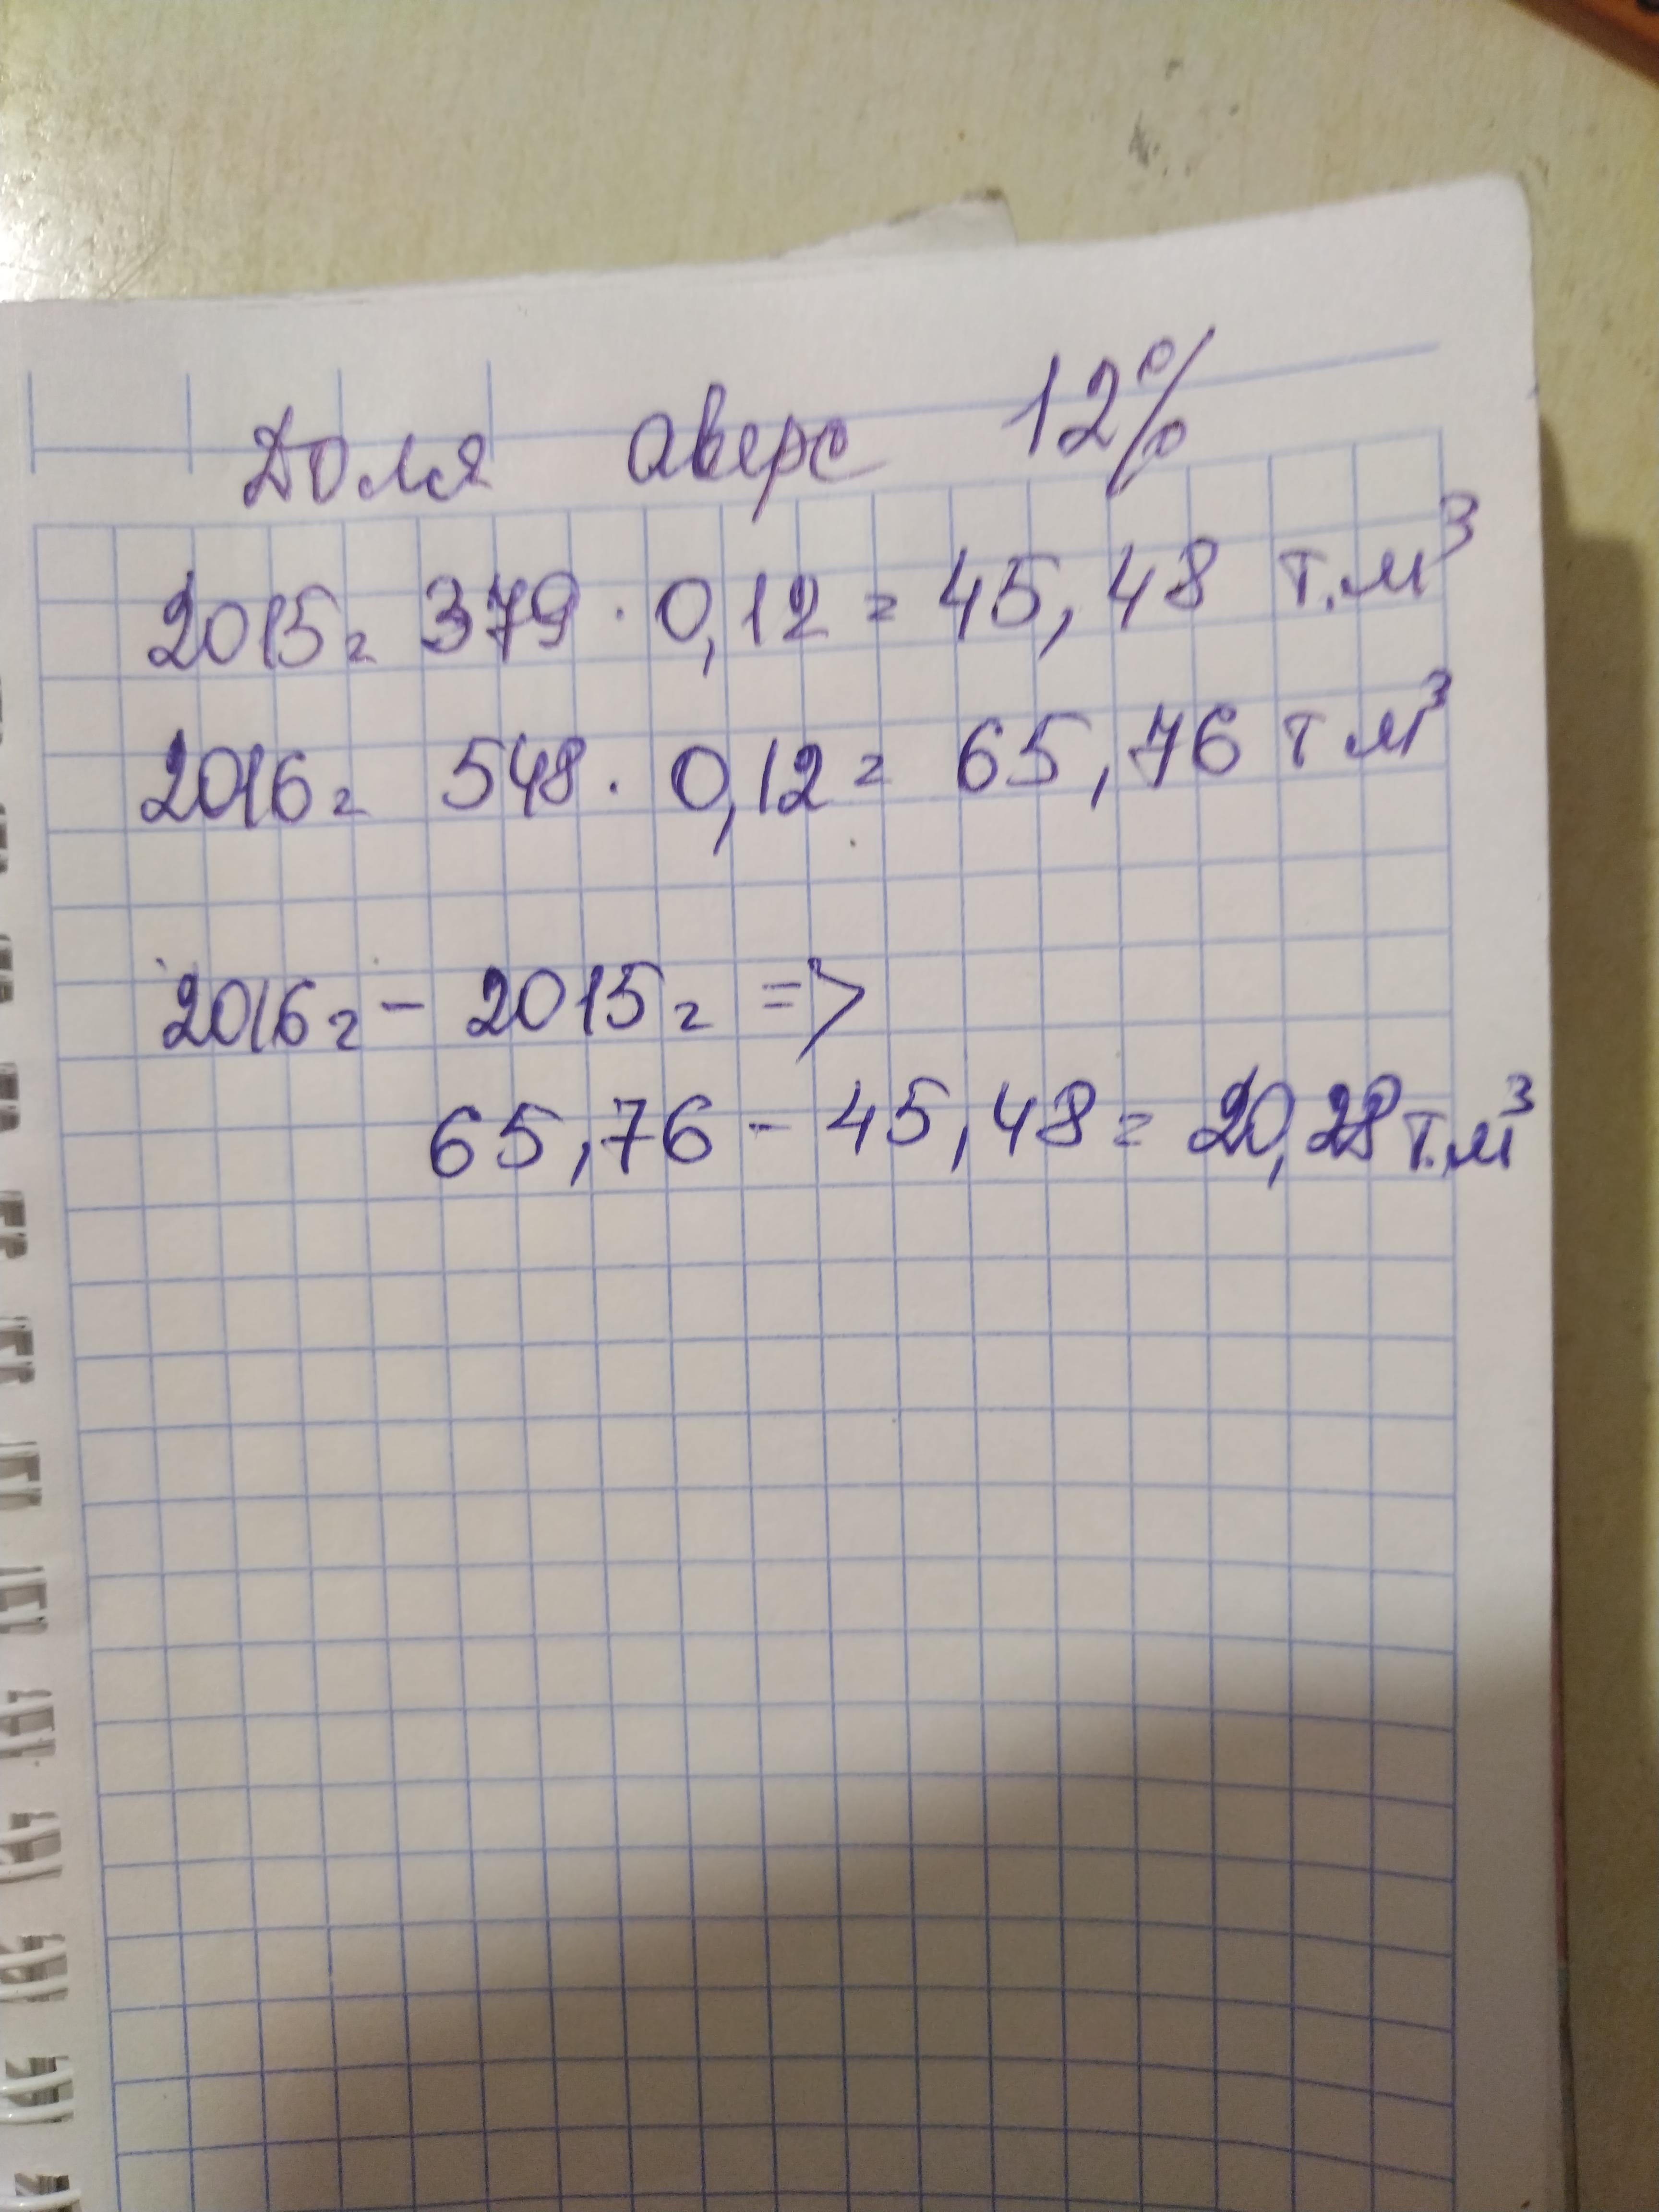 Доля аверс 12%
2015г 379 · 0,12 = 45,48 т.м³
2016г 548 · 0,12 = 65,76 т м³
2016г - 2015г =>
65,76 - 45,48 = 20,28 т.м³